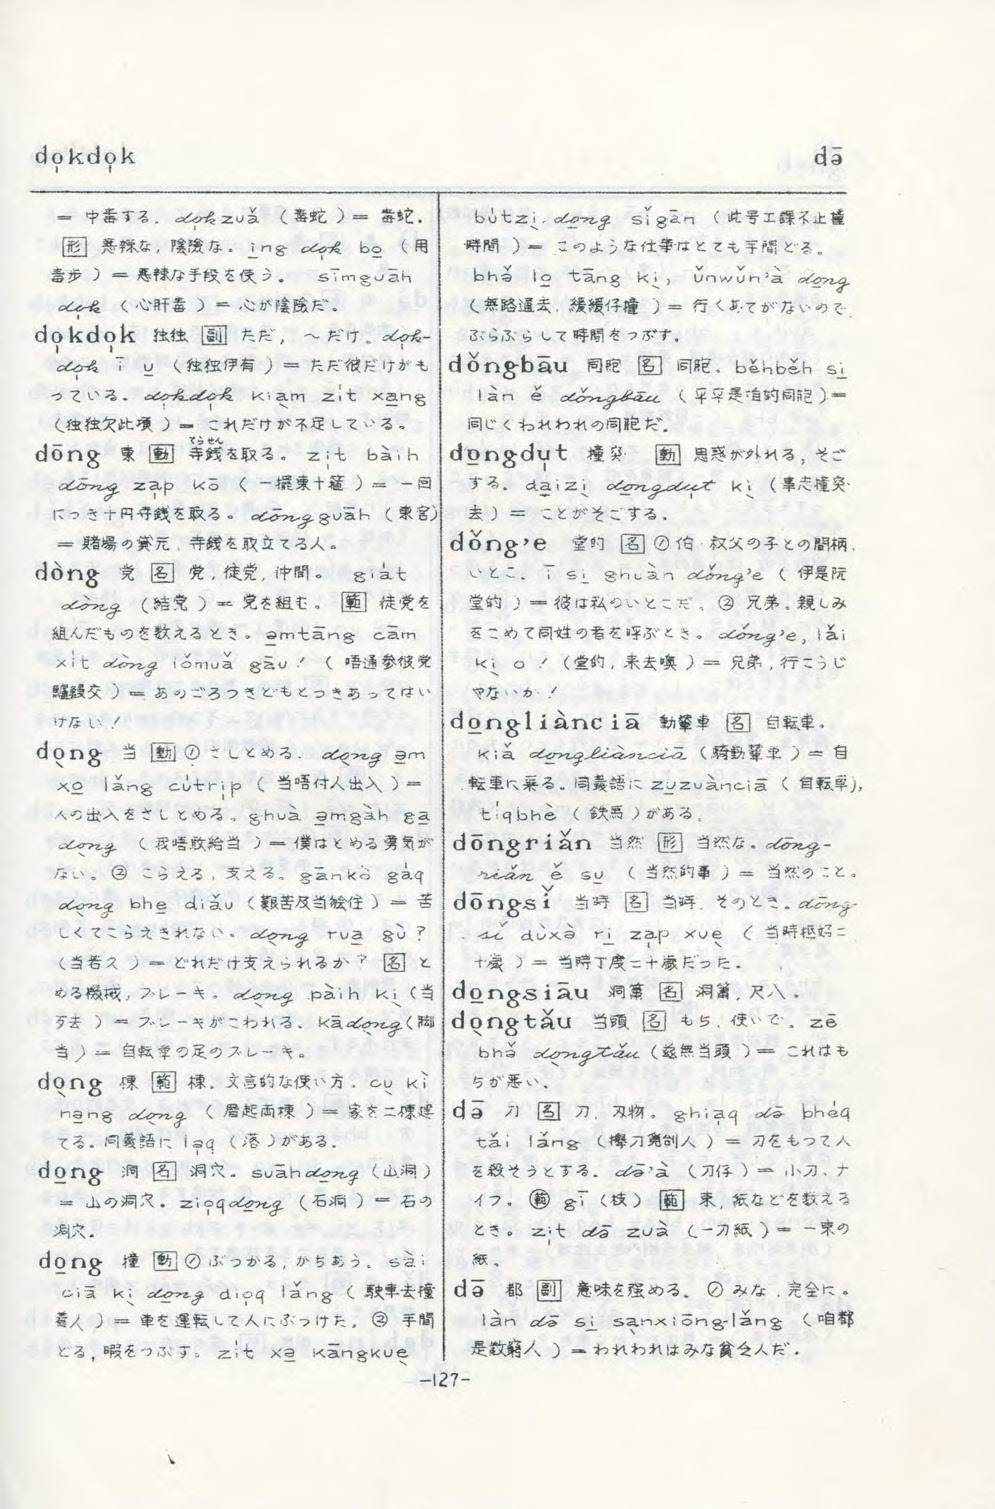 do̍kdo̍k
dā
= 中毒する. do̍k zuǎ (毒蛇) = 毒蛇.
形 悪辣な, 陰険な. i̱ng do̍k bo̱ (用
毒步) = 悪辣な手段を使う. sīmguāh
do̍k (心肝毒) = 心が陰険だ.
do̍kdo̍k 独独 副 ただ, ～だけ. do̍k-
do̍k ī u̱ (独独伊有) = ただ彼だけがも
っている. do̍kdo̍k kiàm zit xang
(独独欠此項) = これだけが不足している.
dōng 東 動 寺銭を取る. zi̍t bàih
てらせん
dōng za̍p kō (一摆東十箍) = 一回
につき十円寺銭を取る. dōng guāh (東官)
= 賭場の貸元, 寺銭を取立てる人.
dòng 党 名 党, 徒党, 仲間. giat
dòng (結党) = 党を組む. 範 徒党を
組んだものを数えるとき. əmtāng cām
xit dòng lǒmuǎ gāu! (唔通參彼党
交) = あのごろつきどもとつきあってはい
けない!
dong 当 動 ① さしとめる. dong əm
xo̱ lǎng cu̍tri̍p (当唔付人出入) =
人の出入をさしとめる. ghuà əmgàh ga
dong (我唔敢給当) = 僕はとめる勇気が
ない. ② こらえる, 支える. gānkò gaq
dong bhe̱ diǎu (艱苦及当袂住) = 苦
しくてこらえきれない. dong rua̱ gù?
(当若久) = どれだけ支えられるか? 名 と
める機械, ブレーキ. dong pàih ki (当
歹去) = ブレーキがこわれる. kādong (脚
当) = 自転車の足のブレーキ.
dong 棟 範 棟. 文言的な使い方. cu kì
na̱ng dong (厝起両棟) = 家を二棟建
てる. 同義語に la̍q (落) がある.
do̱ng 洞 名 洞穴. suāhdo̱ng (山洞)
= 山の洞穴. zio̍qdo̱ng (石洞) = 石の
洞穴.
do̱ng 撞 動 ① ぶつかる, かちあう. sài
ciā ki do̱ng dio̍q lǎng (駛車去撞
着人) = 車を運転して人にぶつけた. ② 手間
どる, 暇をつぶす. zi̍t xə̱ kāngkue
bu̍tzì do̱ng sǐgān (此号工課不止撞
時間) = このような仕事はとても手間どる.
bhǒ lo̱ tāng ki, ǔnwǔn'à do̱ng
(無路通去, 緩緩仔撞) = 行くあてがないので,
ぶらぶらして時間をつぶす.
dǒngbāu 同胞 名 同胞. běhběh si̱
làn ě dǒngbāu (平平是咱的同胞) =
同じくわれわれの同胞だ.
do̱ngdu̍t 撞突 動 思惑が外れる, そご
する. da̱izì do̱ngdu̍t ki (事志撞突
去) = ことがそごする.
dǒng'e 堂的 名 ① 伯・叔父の子との間柄,
いとこ. ī si̱ ghuàn dǒng'e (伊是阮
堂的) = 彼は私のいとこだ. ② 兄弟. 親しみ
をこめて同姓の者を呼ぶとき. dǒng'e, lǎi
ki o! (堂的, 来去噢) = 兄弟, 行こうじ
ゃないか!
do̱ngliànciā 動輦車 名 自転車.
kiǎ do̱ngliànciā (騎動輦車) = 自
転車に乗る. 同義語に zu̱zuànciā (自転車),
tiqbhè (鉄馬) がある.
dōngriǎn 当然 形 当然な. dōng-
riǎn ě su̱ (当然的事) = 当然のこと.
dōngsǐ 当時 名 当時, そのとき. dōng-
sǐ dùxà ri̱ za̍p xue (当時抵好二
十歳) = 当時丁度二十歳だった.
do̱ngsiāu 洞簫 名 洞簫, 尺八.
dongtǎu 当頭 名 もち, 使いで. zē
bhǒ dongtǎu (這無当頭) = これはも
ちが悪い.
dā 刀 名 刀, 刃物. ghia̍q də̄ bhèq
tǎi lǎng (攑刀 刣人) = 刀をもって人
を殺そうとする. də̄'à (刀仔) = 小刀, ナ
イフ. 範 gī (枝) 範 束, 紙などを数える
とき. zi̍t də̄ zuà (一刀紙) = 一束の
紙.
də̄ 都 副 意味を強める. ① みな, 完全に.
làn də̄ si̱ sa̱nxiōng-lǎng (咱都
是散窮人) = われわれはみな貧乏人だ.
-127-